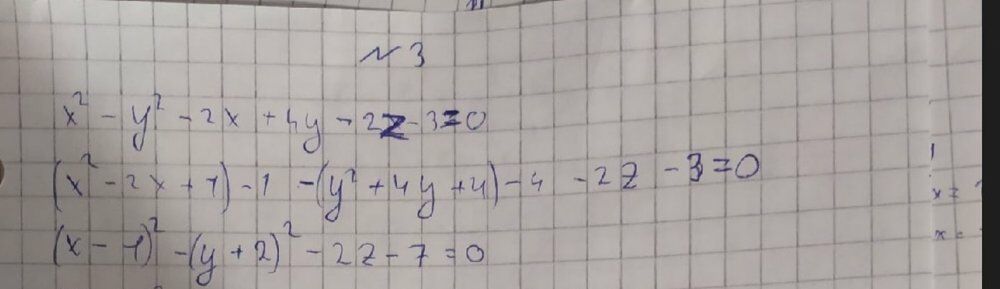 № 3
x² - y² - 2x + 4y - 2z - 3 = 0
(x² - 2x + 1) - 1 - (y² + 4y + 4) - 4 - 2z - 3 = 0
(x - 1)² - (y + 2)² - 2z - 7 = 0
x =
x =